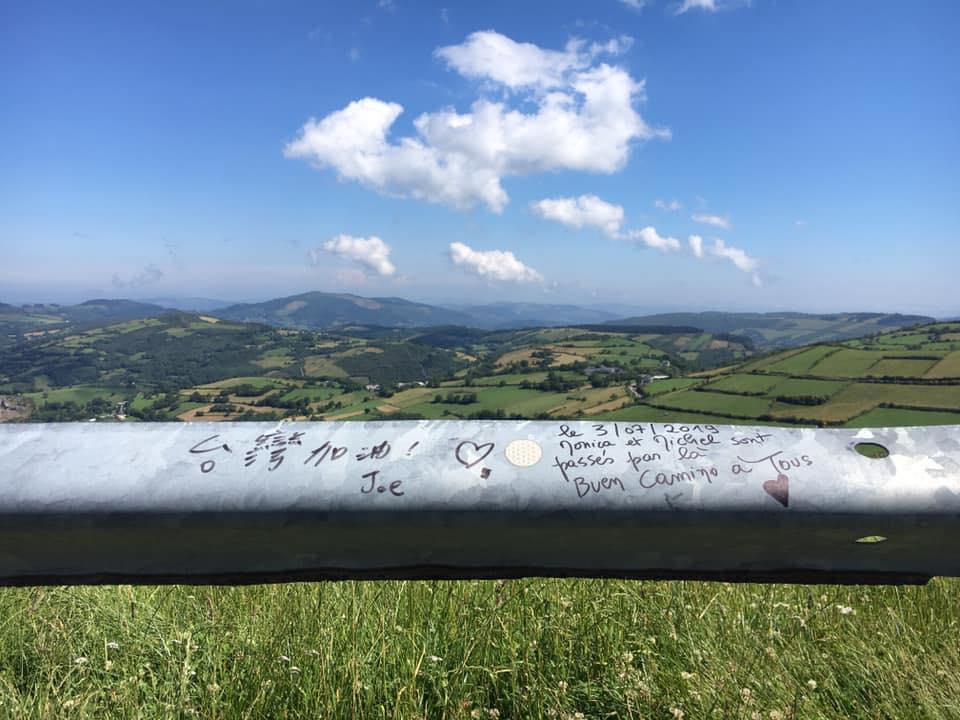 台灣加油!
Joe
le 3/07/2019
Monica et Michel sont
passés par là
Buen Camino a Tous